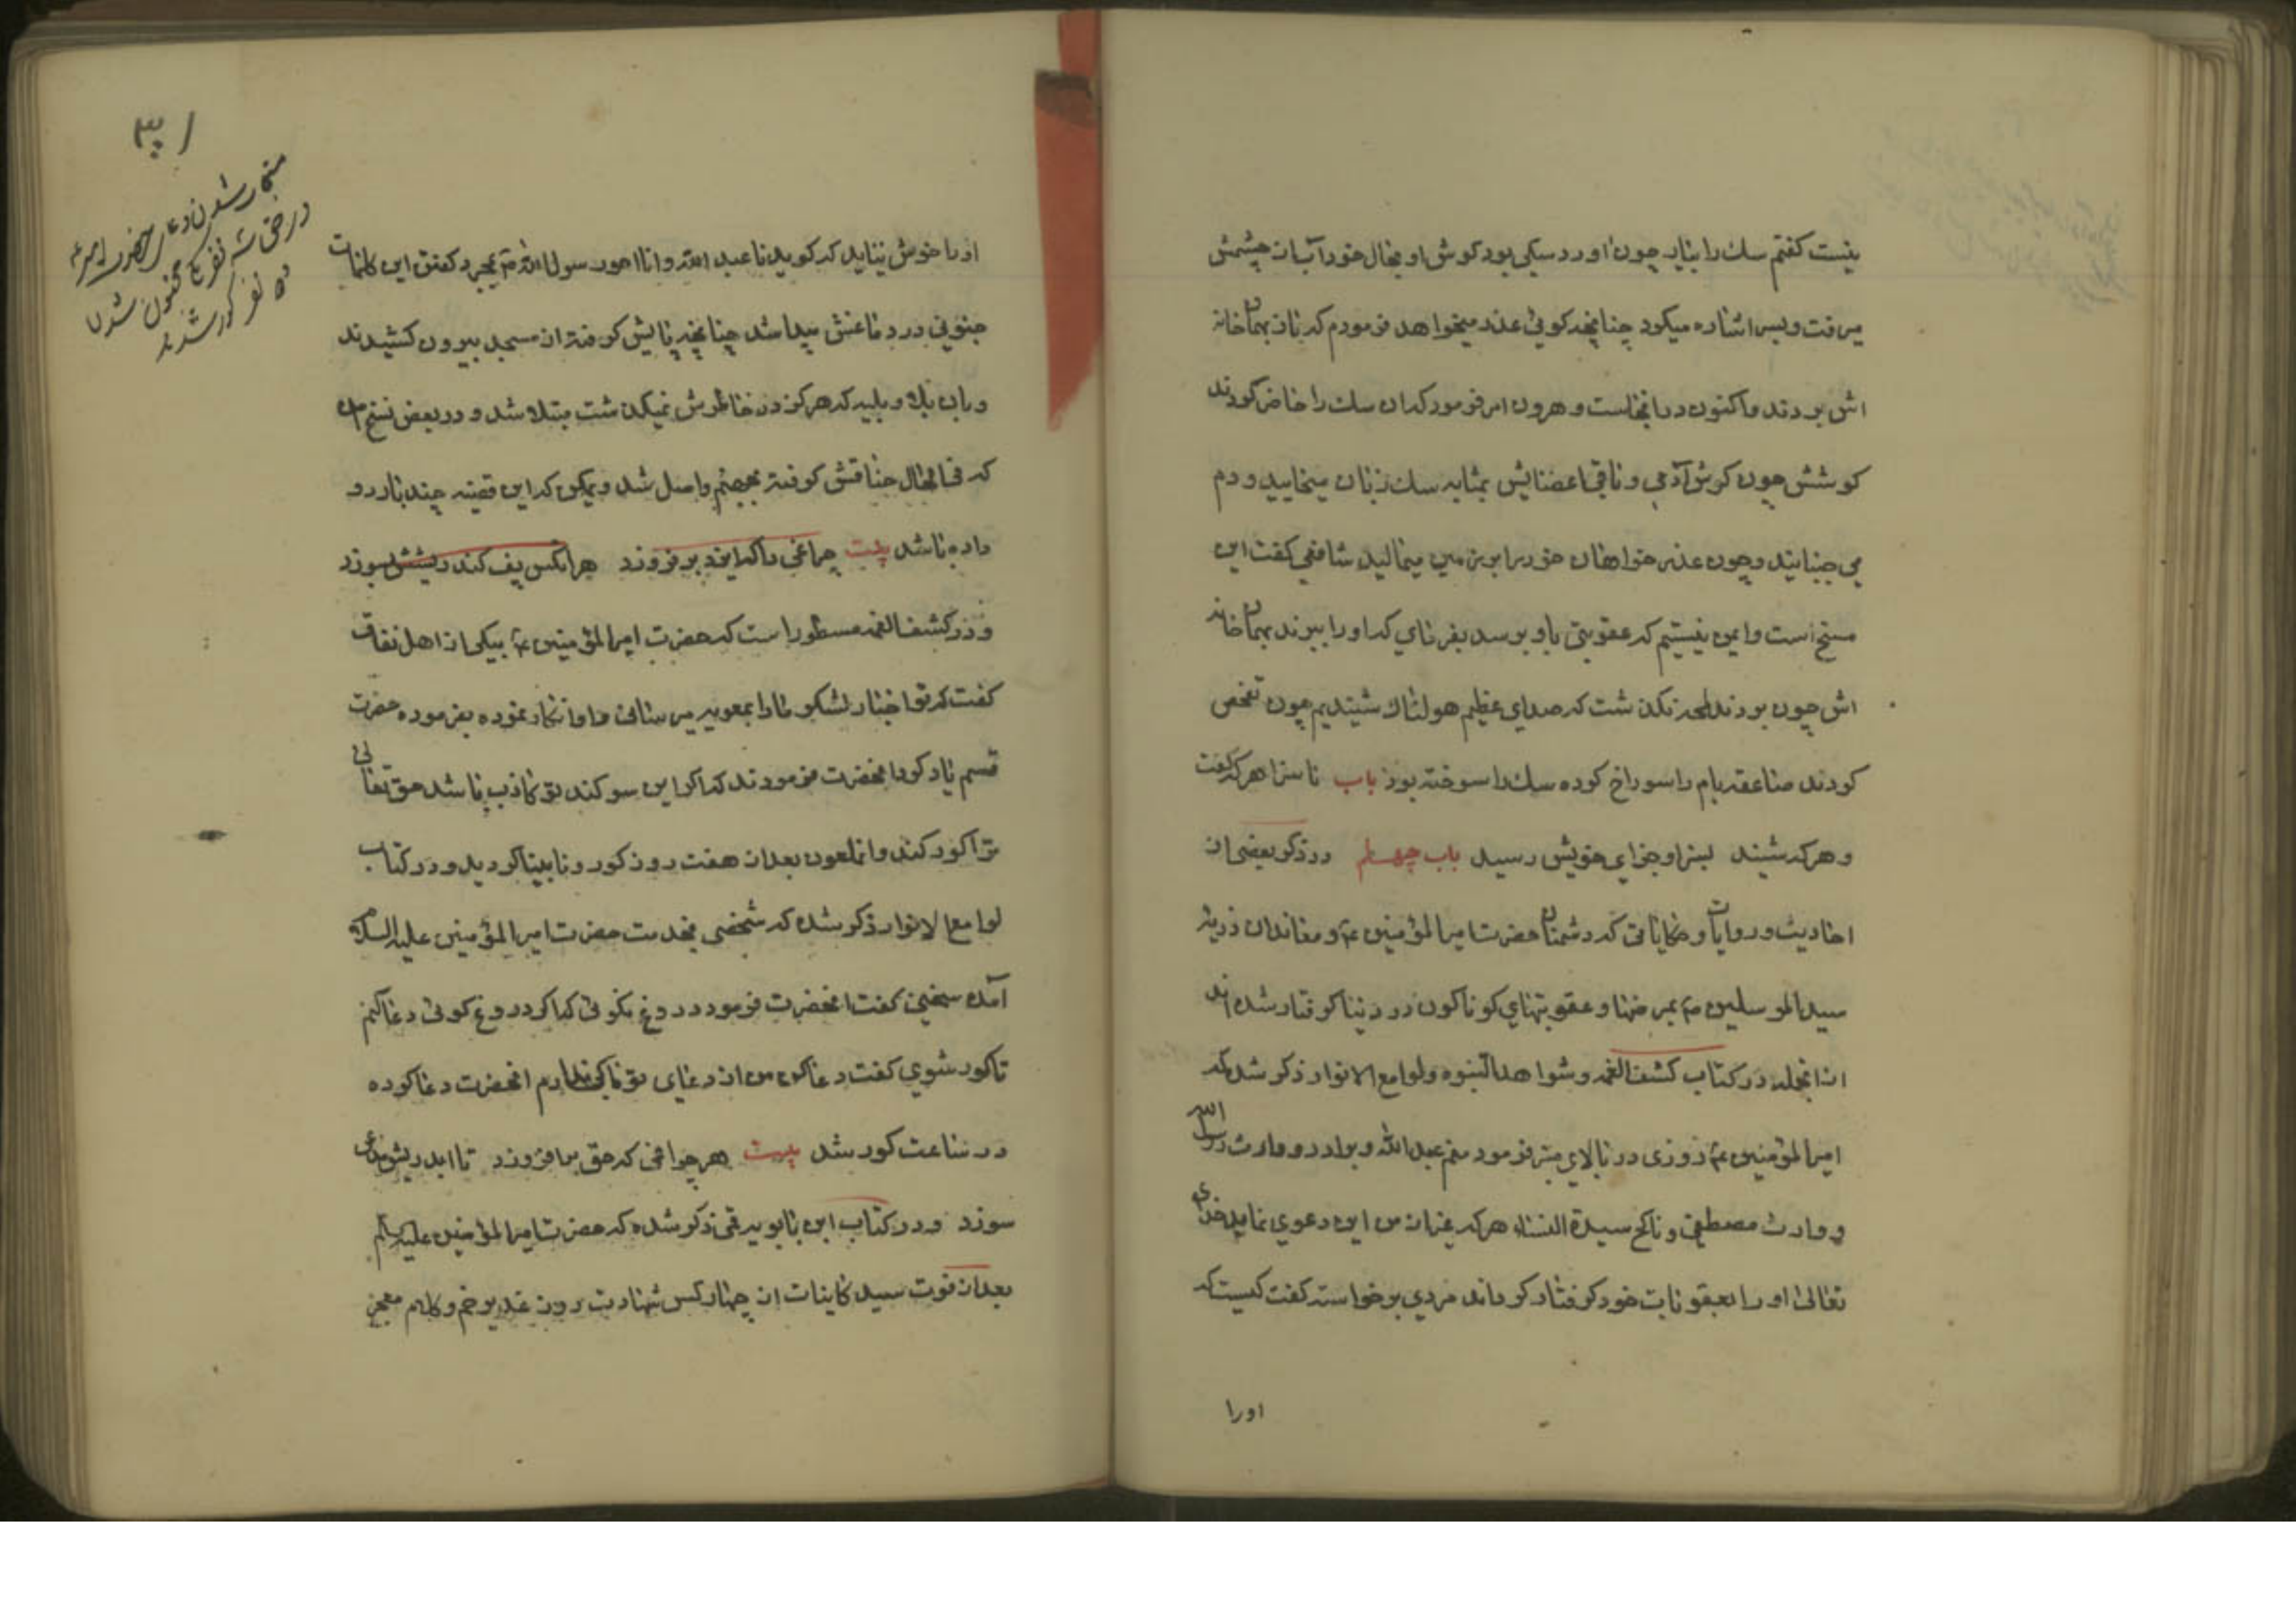 نیست کفتم سك را بیارید چون اورد سکی بود کوش او بحال خود آب از چشمش
میرفت و بسر اشاره میکرد چنانچه کوئی عذر میخواهد فرمودم که باز بهمان خانه
اش بردند و اکنون در انجاست و هرون امر فرمود که ان سك را حاضر کردند
کوشش چون کوش آدمی و باقی اعضایش بمثابه سك زبان میخایید و دم
می جنبانید و چون عذر خواهان خود را بر زمین میمالید شافعی کفت این
مسخ است و ایمن نیستیم که عقوبتی باو برسد بفرمای که او را ببرند بهمان خانه
اش چون بردند لمحه نکذشت که صدای عظیم هولناك شنیدیم چون تفحص
کردند صاعقه بام را سوراخ کرده سك را سوخته بود باب ناسزا هر که کفت
و هر که شنید بسزا و جزای خویش رسید باب چهلم در ذکر بعضی از
احادیث و روایات و حکایاتی که دشمنان حضرت امیر المؤمنین ع و معاندان ذریه
سید المرسلین ص بمرضها و عقوبتهای کوناکون در دنیا کرفتار شده اند
از انجمله در کتاب کشف الغمه و شواهد النبوه و لوامع الانوار ذکر شده که
امیر المؤمنین ع روزی در بالای منبر فرمود منم عبد الله و برادر و وارث رسول الله
و وارث مصطفی و ناکح سیدة النساء هر که غیر از من این دعوی نماید خدای
تعالی او را بعقوبات خود کرفتار کرداند مردی برخواسته کفت کیست که
اورا
۳۱
مستجاب شدن دعای حضرت امیر ع
در حق سه نفر مجنون شدن
دو نفر کور شدند
او را خوش نیاید که کوید انا عبد الله و انا اخو رسول الله ص بمجرد کفتن این کلمات
جنونی در دماغش پیدا شد چنانچه پایش کرفته از مسجد بیرون کشیدند
و بان بلا و بلیه که هرکز در خاطرش نمیکذشت مبتلا شد و در بعض نسخ است
که فی الحال خناقش کرفته بجهنم واصل شد و یمکن که این قضیه چند بار رو
داده باشد بیت چراغی را که ایزد برفروزد هرانکس پف کند ریشش بسوزد
و در کشف الغمه مسطور است که حضرت امیر المؤمنین ع بیکی از اهل نفاق
کفت که تو اخبار لشکر ما را بمعویه میرسانی و او انکار نموده بفرموده حضرت
قسم یاد کرد انحضرت فرمودند که اکر این سوکند تو کاذب باشد حق تعالی
ترا کور کند و انملعون بعد از هفت روز کور و نابینا کردید و در کتاب
لوامع الانوار ذکر شده که شخصی بخدمت حضرت امیر المؤمنین علیه السلام
آمده سخنی کفت انحضرت فرمود دروغ مکوئی که اکر دروغ کوئی دعا کنم
تا کور شوی کفت دعا کن من از دعای تو باکی ندارم انحضرت دعا کرده
در ساعت کور شد بیت هر چراغی که حق برافروزد تا ابد ریش مدعی
سوزد و در کتاب ابن بابویه قمی ذکر شده که حضرت امیر المؤمنین علیه السلام
بعد از فوت سید کاینات از چهار کس شهادت روز غدیر خم و کلام معجز